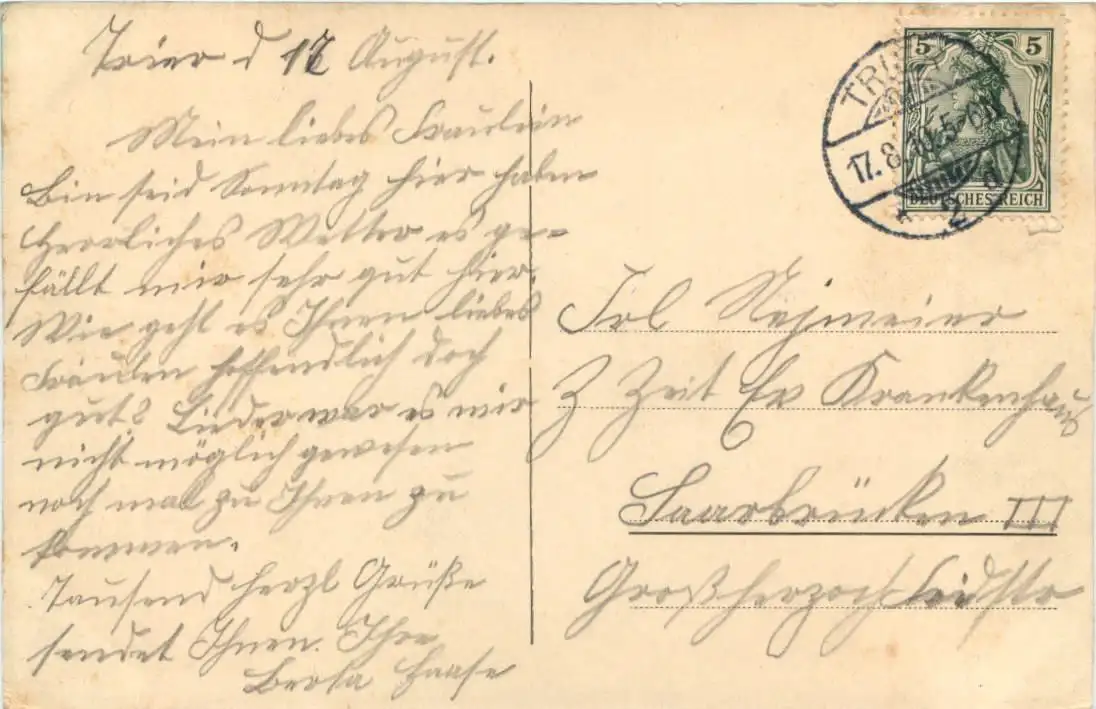 Trier d 17 August.
Mein liebes Fräulein
Bin seid Sonntag hier haben
Herrliches Wetter es ge-
fällt mir sehr gut hier.
Wie geht es Ihnen liebes
Fräulein hoffendlich doch
gut? Lieder war es mir
nicht möglich gewesen
noch mal zu Ihnen zu
kommen.
Tausend herzl Grüße
sendet Ihnen. Ihre
Berta Haase
5 5
DEUTSCHES REICH
TRIER
17.8.10.5-6N
* 2 d
Frl Nejmeier
Z Zeit Ev Krankenhaus
Saarbrücken III
Großherzog